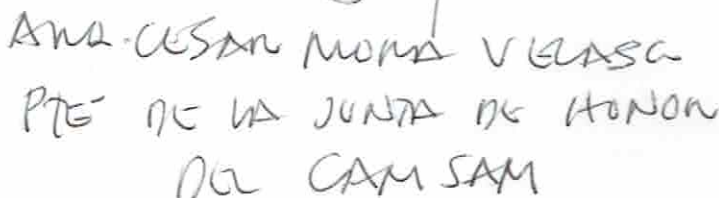 ARQ. CESAR MORA VELASCO
PTE DE LA JUNTA DE HONOR
DEL CAM SAM